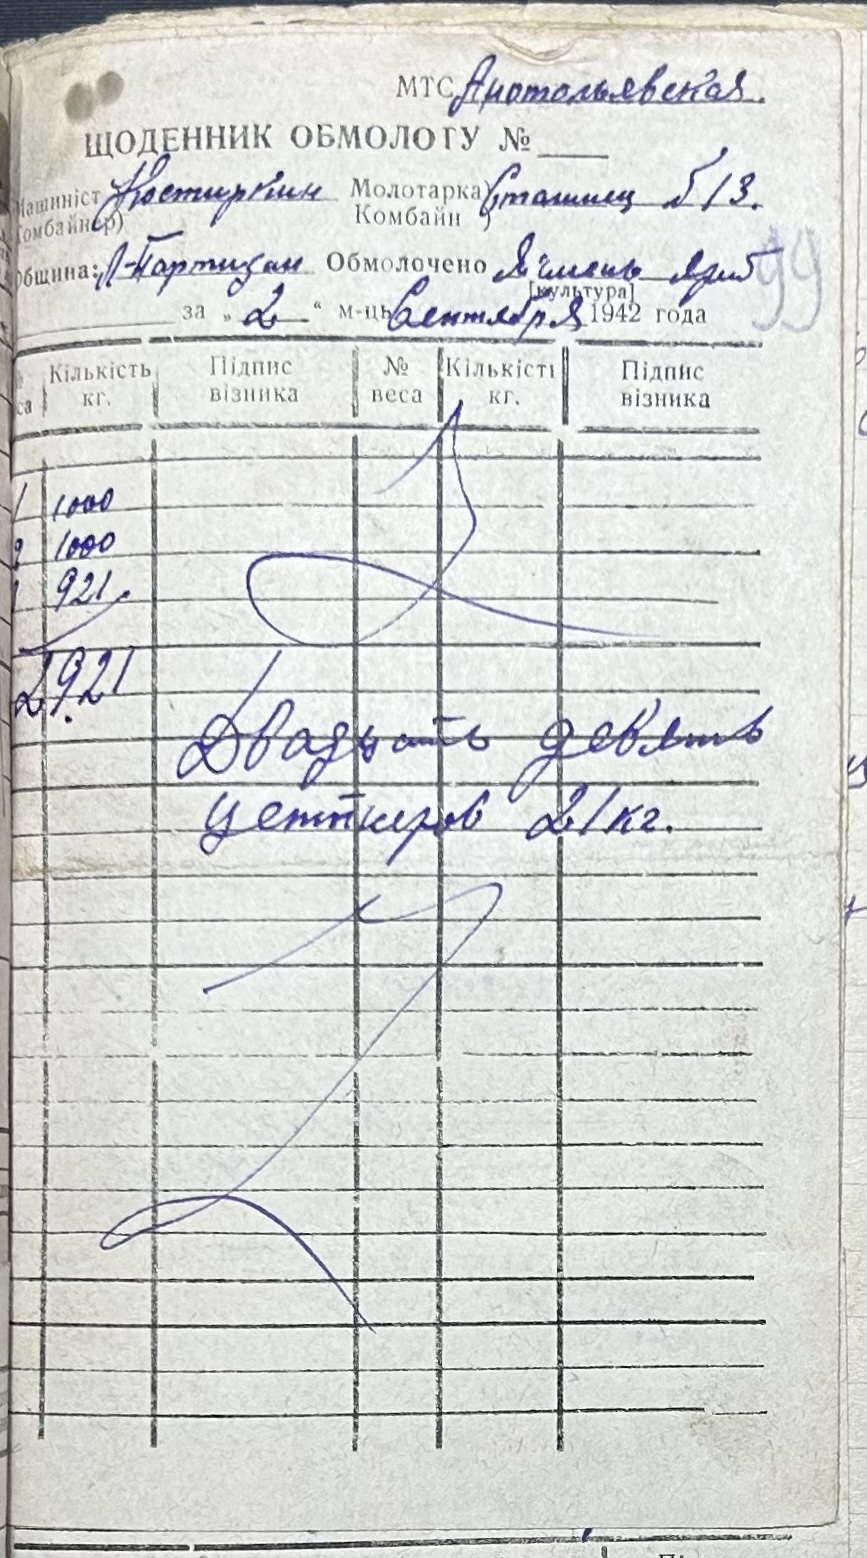 МТС Анатольевская.
ЩОДЕННИК ОБМОЛОГУ №
Машиніст Костиркин Молотарка) Сталинец 5/3.
Комбайнер) Комбайн )
община: Партизан Обмолочено Ячмень яриб
[культура]
за „2“ м-ць Сентября 1942 года
99
Кількість кг. Підпис візника № веса Кількісті кг. Підпис візника
са
1 1000
2 1000
921
2921
Двадцать девять
центнеров 21 кг.